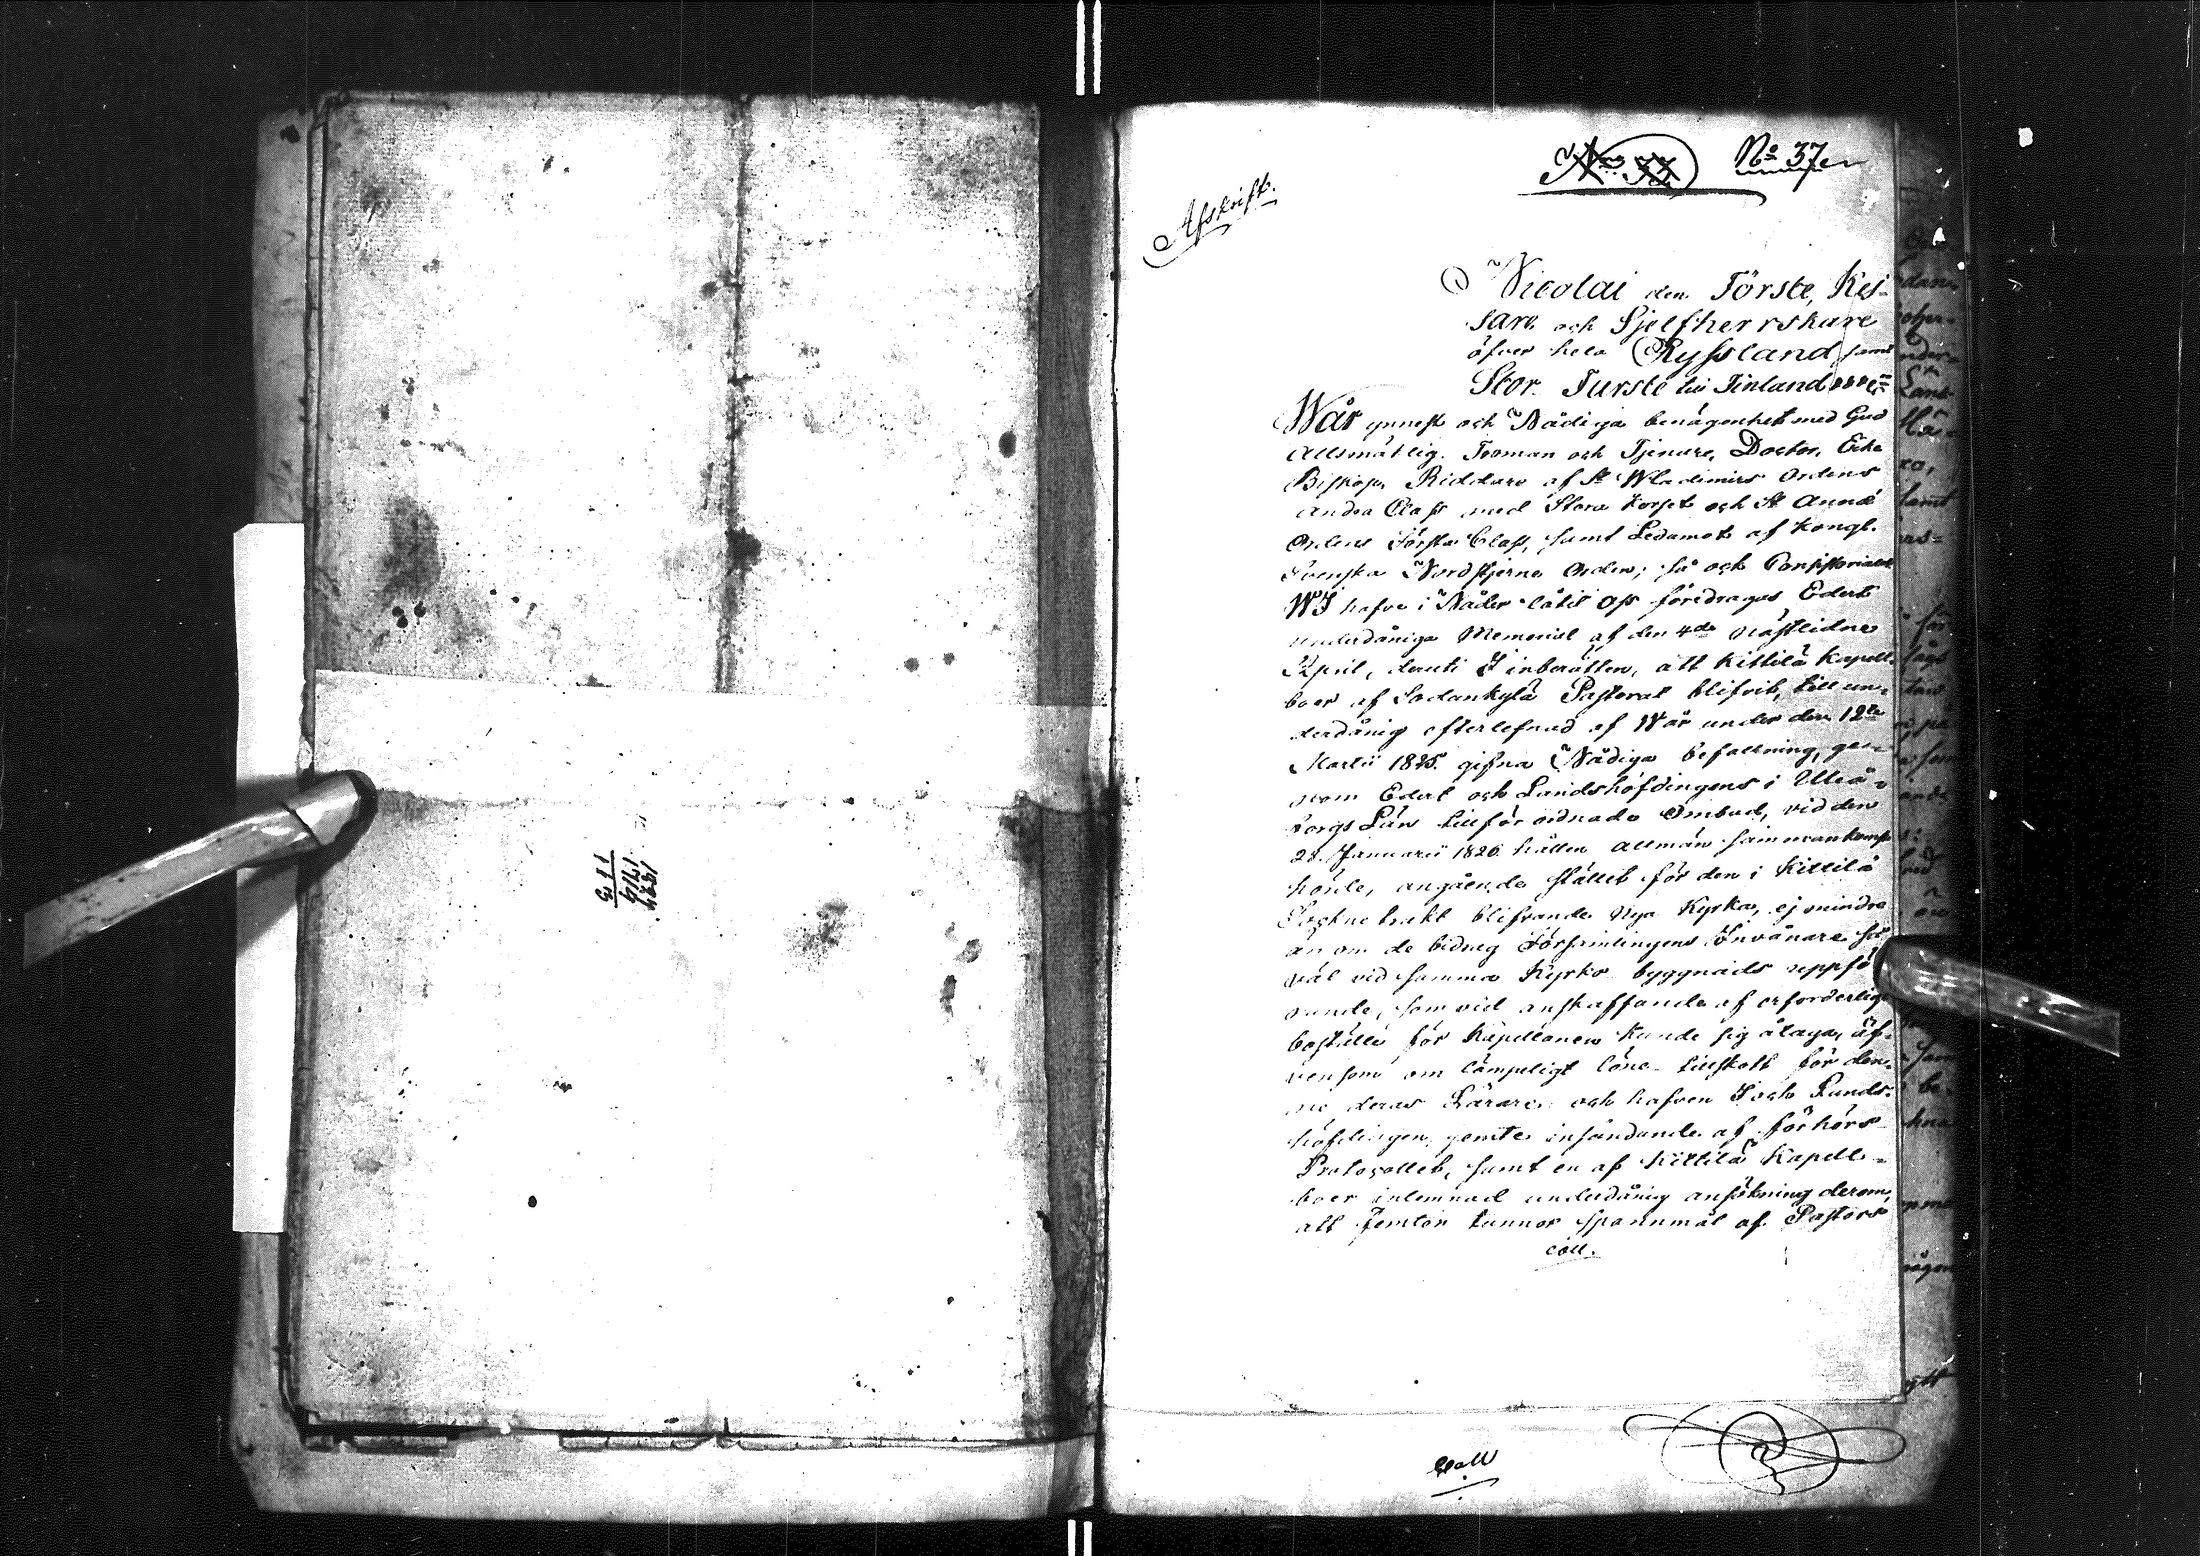 1827
1714
113
No 37
Afskrift.
Nicolai den Förste, Kej-
sare och Sjelfherrskare
öfver hela Ryssland, samt
Stor Furste till Finland
Wår ynnest och Nådiga benägenhet med Gud
Allsmäktig. Troman och Tjenare, Doctor, Erke
Biskop, Riddare af St Wladimirs Ordens
andra Class med Stora Korset och St Annæ
Ordens Första Class, samt Ledamot af Kongl.
Svenska Nordstjerne Orden; så och Consistorialer
WI hafve i Nåder låtit Oss föredragas Edert
underdåniga Memorial af den 4de nästlidne
April, deruti I inberätten, att Kittilä Kapell-
boer af Sodankylä Pastorat blifvit, till un-
derdånig efterlefnad af Wår under den 12te
Martii 1825. gifna Nådiga befallning, ge-
nom Edert och Landshöfdingens i Uleå-
borgs Län tillförordnade Ombud, vid den
28. Januarii 1826 hållen allmän sammankomst
hörde, angående stället för den i Kittilä
Sockne trakt blifvande Nya Kyrka, ej mindre
än om de bidrag Församlingens Invånare så
väl vid samma Kyrko byggnads uppfö
rande, som vid anskaffande af erforderligt
boställe för Kapellanen kunde sig åtaga, äf-
vensom om lämpeligt löne-tillskott för den-
ne deras Lärare, och hafven I och Lands-
höfdingen, jemte insändande af förhörs
Protocollet, samt en af Kittilä Kapell-
boer inlemnad underdånig ansökning derom,
att femton tunnor spannmål af Pastors
coll.
Coll